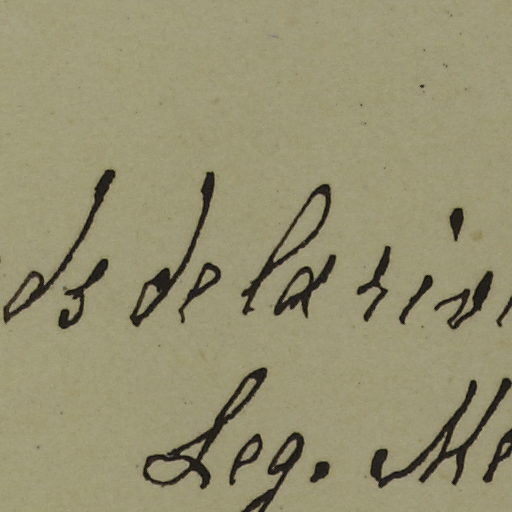 ds de la rivi
Leg. Me